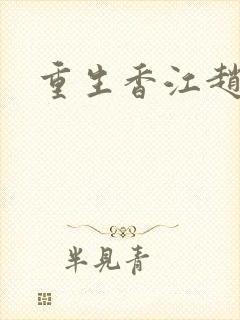 重生香江趙
半見青